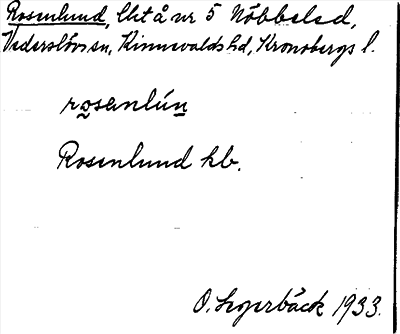 Rosenlund, lht å nr 5 Nöbbeled,
Vederslövs sn, Kinnevalds hd, Kronobergs l.
rosenlún
Rosenlund kb.
O. Segerbäck 1933.